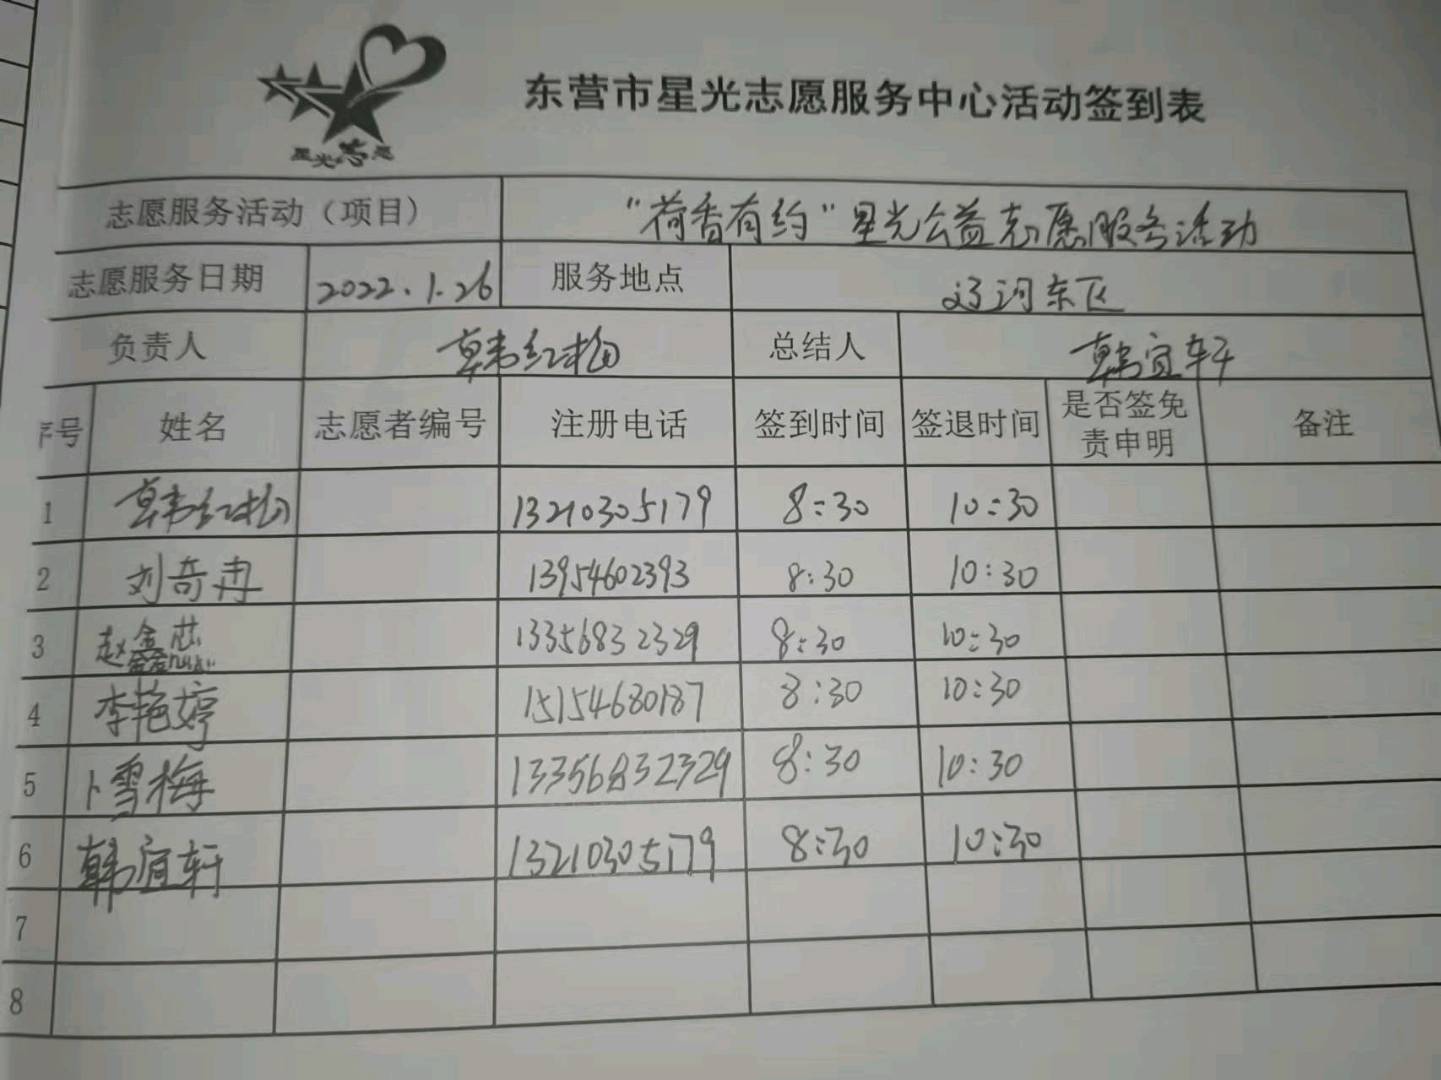 星光志愿
东营市星光志愿服务中心活动签到表
志愿服务活动（项目） “荷香有约”星光公益志愿服务活动
志愿服务日期 2022.1.26 服务地点 辽河东区
负责人 韩红梅 总结人 韩宜轩
序号 姓名 志愿者编号 注册电话 签到时间 签退时间 是否签免责申明 备注
1 韩红梅 13210305179 8:30 10:30
2 刘奇冉 13954602393 8:30 10:30
3 赵鑫芯 13356832329 8:30 10:30
4 李艳婷 15154680187 8:30 10:30
5 卜雪梅 13356832329 8:30 10:30
6 韩宜轩 13210305179 8:30 10:30
7
8